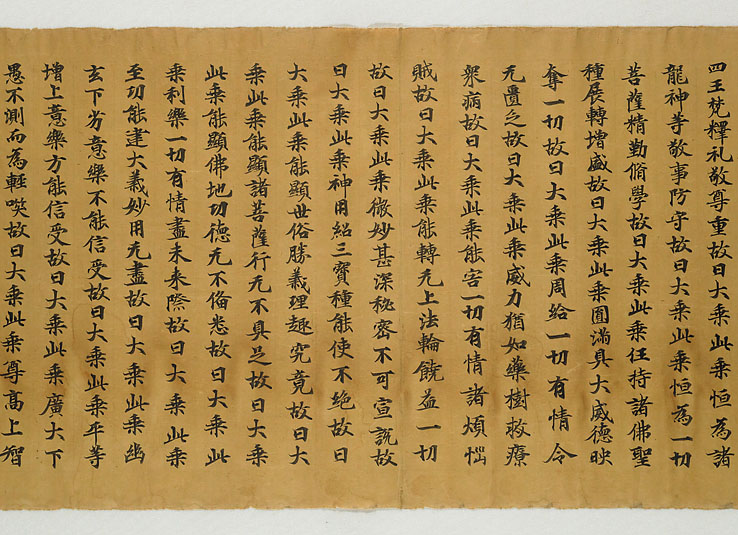 四王梵釋礼敬尊重故曰大乘此乘恒為諸
龍神等敬事防守故曰大乘此乘恒為一切
菩薩精勤脩學故曰大乘此乘任持諸佛聖
種展轉增盛故曰大乘此乘圓滿具大威德映
奪一切故曰大乘此乘周給一切有情令
无匱乏故曰大乘此乘威力猶如藥樹救療
衆病故曰大乘此乘能害一切有情諸煩惱
賊故曰大乘此乘能轉无上法輪饒益一切
故曰大乘此乘微妙甚深秘密不可宣說故
曰大乘此乘神用紹三寶種能使不絶故曰
大乘此乘能顯世俗勝義理趣究竟故曰大
乘此乘能顯諸菩薩行无不具足故曰大乘
此乘能顯佛地功德无不備悉故曰大乘此
乘利樂一切有情盡未来際故曰大乘此乘
至功能建大義妙用无盡故曰大乘此乘幽
玄下劣意樂不能信受故曰大乘此乘平等
增上意樂方能信受故曰大乘此乘廣大下
愚不測而為輕咲故曰大乘此乘尊高上智